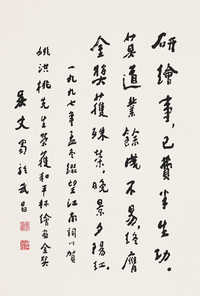 研繪事,已費半生功。
莫道業餘成不易,終膺
金獎獲殊榮。晚景夕陽紅。
一九九七年孟冬綴望江南詞以賀
姚洪桃先生榮獲和平杯繪畫金獎
吳丈蜀於武昌